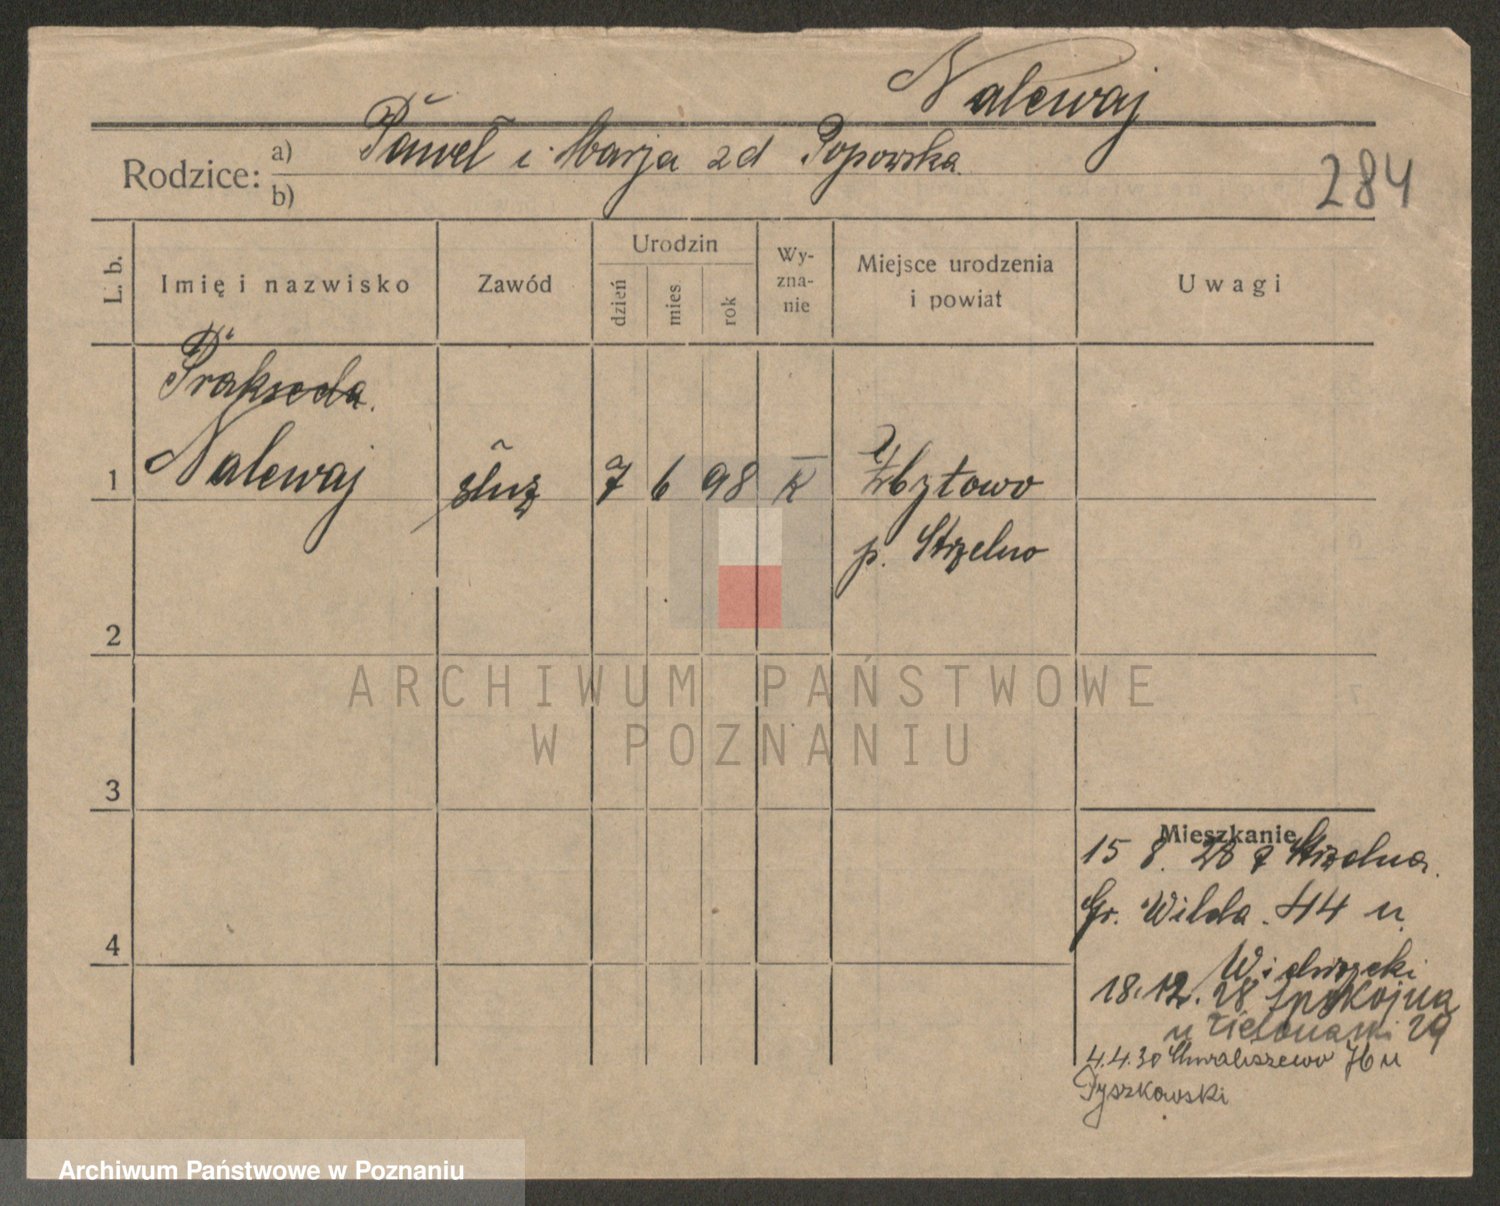 Nalewaj
Rodzice: a) Paweł i Marja zd Popowska
b)
284
L. b.
Imię i nazwisko
Zawód
Urodzin
dzień
mies
rok
Wy-
zna-
nie
Miejsce urodzenia
i powiat
Uwagi
Prakseda
1 Nalewaj służ 7 6 98 K Zbytowo
p. Strzelno
2
ARCHIWUM PAŃSTWOWE
W POZNANIU
3
Mieszkanie
15 8. 28 z Strzelna.
4 Gr. Wilda. 44 u
18.12.28 Spokojna
u 29
4.4.30 Chwaliszewo 76 u
Tyszkowski
Archiwum Państwowe w Poznaniu